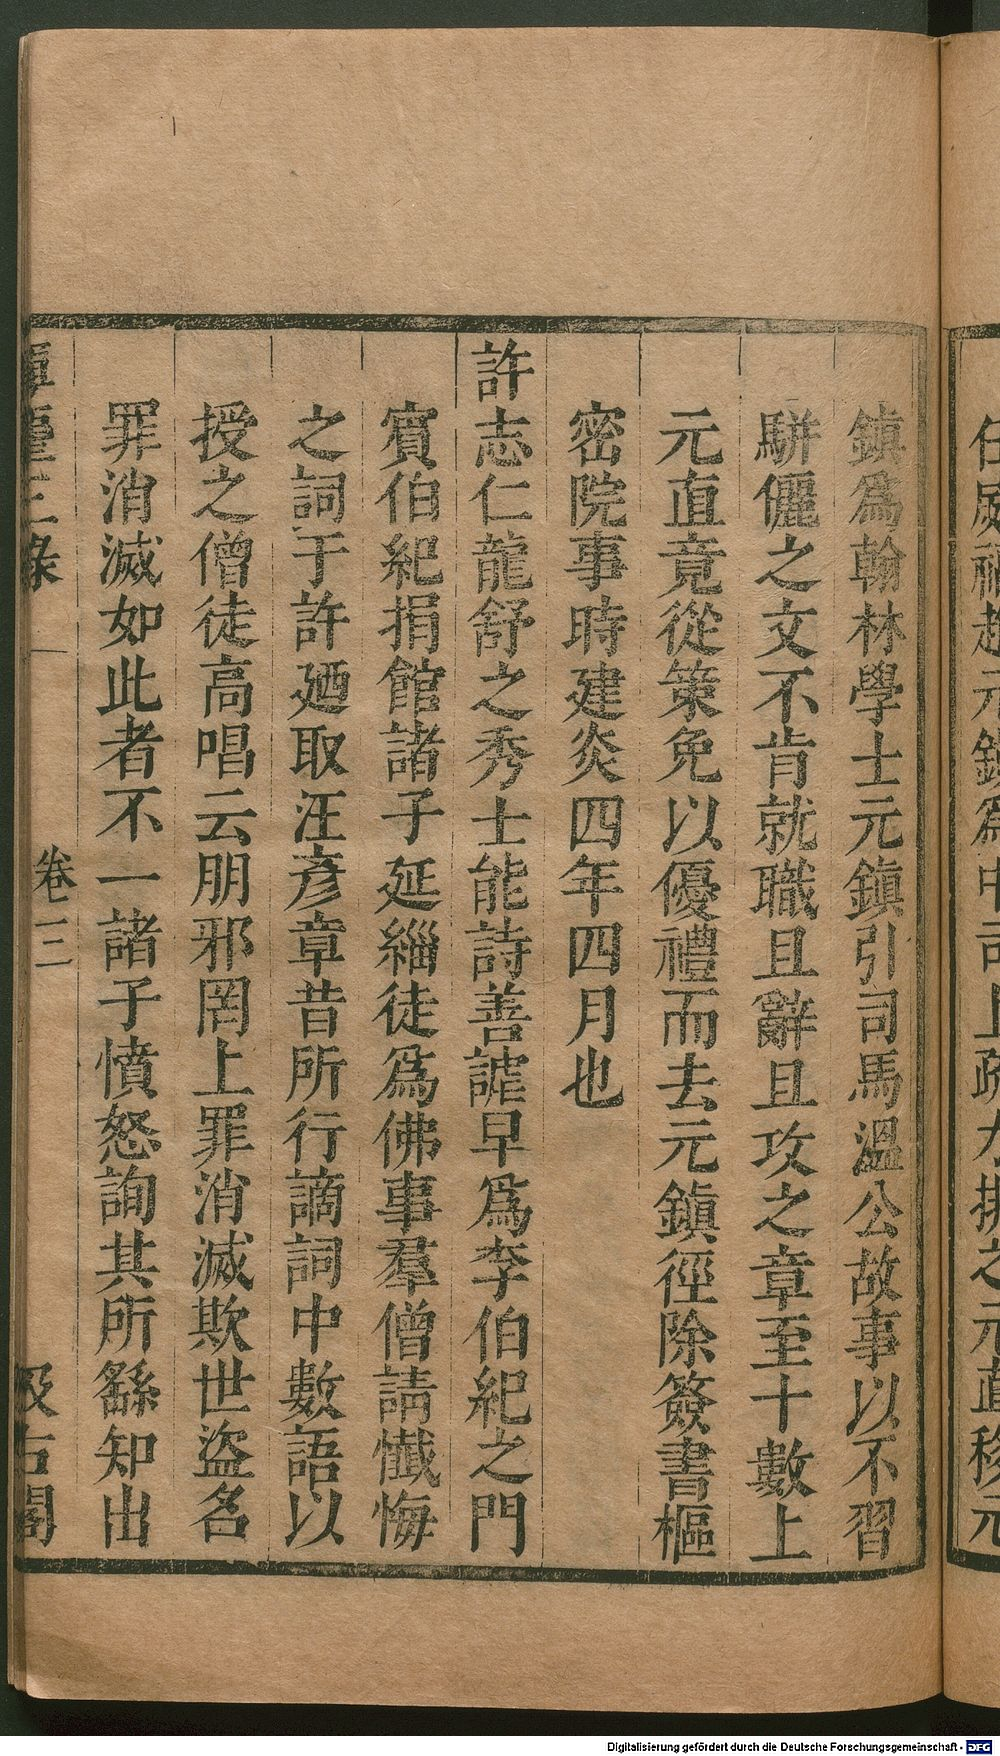 鎮爲翰林學士元鎮引司馬溫公故事以不習
駢儷之文不肯就職且辭且攻之章至十數上
元直竟從策免以優禮而去元鎮徑除簽書樞
密院事時建炎四年四月也
許志仁龍舒之秀士能詩善謔早爲李伯紀之門
賓伯紀捐館諸子延緇徒爲佛事羣僧請懺悔
之詞于許廼取汪彥章昔所行謫詞中數語以
授之僧徒高唱云朋邪罔上罪消滅欺世盜名
罪消滅如此者不一諸子憤怒詢其所繇知出
卷三
汲古閣
Digitalisierung gefördert durch die Deutsche Forschungsgemeinschaft - DFG